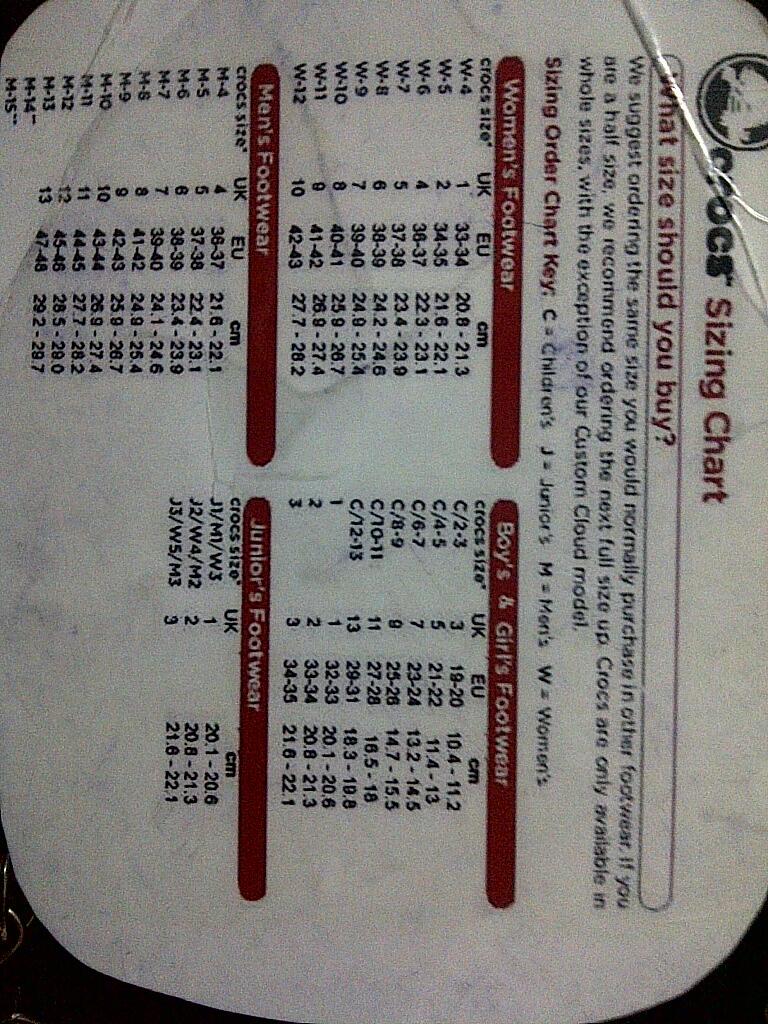 crocs™ Sizing Chart
What size should you buy?
We suggest ordering the same size you would normally purchase in other footwear. If you
are a half size, we recommend ordering the next full size up. Crocs are only available in
whole sizes, with the exception of our Custom Cloud model.
Sizing Order Chart Key: C = Children's J = Junior's M = Men's W = Women's
Women's Footwear
crocs size* UK EU cm
W-4 1 33-34 20.8 - 21.3
W-5 2 34-35 21.6 - 22.1
W-6 4 36-37 22.3 - 23.1
W-7 5 37-38 23.4 - 23.9
W-8 6 38-39 24.2 - 24.6
W-9 7 39-40 24.9 - 25.4
W-10 8 40-41 25.9 - 26.7
W-11 9 41-42 26.9 - 27.4
W-12 10 42-43 27.7 - 28.2
Men's Footwear
crocs size* UK EU cm
M-4 4 36-37 21.6 - 22.1
M-5 5 37-38 22.4 - 23.1
M-6 6 38-39 23.4 - 23.9
M-7 7 39-40 24.1 - 24.6
M-8 8 41-42 24.9 - 25.4
M-9 9 42-43 25.9 - 26.7
M-10 10 43-44 26.9 - 27.4
M-11 11 44-45 27.7 - 28.2
M-12 12 45-46 28.5 - 29.0
M-13 13 47-48 29.2 - 29.7
M-14**
M-15**
Boy's & Girl's Footwear
crocs size* UK EU cm
C/2-3 3 19-20 10.4 - 11.2
C/4-5 5 21-22 11.4 - 13
C/6-7 7 23-24 13.2 - 14.5
C/8-9 9 25-26 14.7 - 15.5
C/10-11 11 27-28 16.5 - 18
C/12-13 13 29-31 18.3 - 19.8
1 1 32-33 20.1 - 20.6
2 2 33-34 20.8 - 21.3
3 3 34-35 21.6 - 22.1
Junior's Footwear
crocs size* UK cm
J1/M1/W3 1 20.1 - 20.6
J2/W4/M2 2 20.8 - 21.3
J3/W5/M3 3 21.6 - 22.1